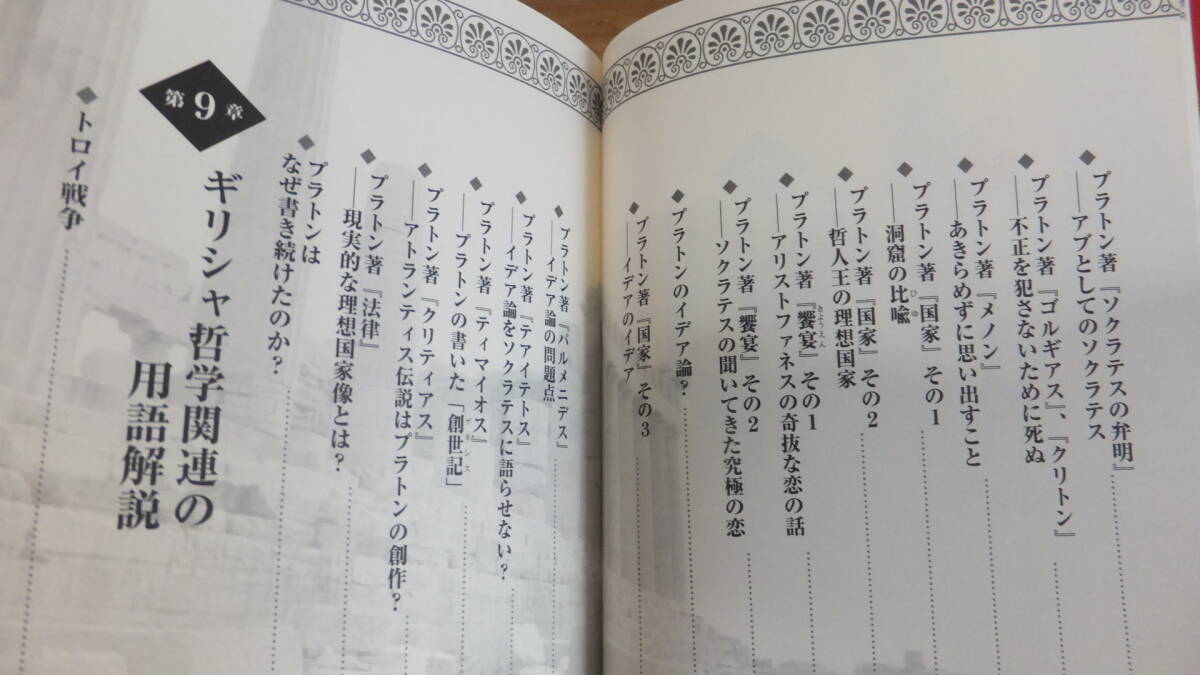 ◆プラトン著『ソクラテスの弁明』
――アブとしてのソクラテス
◆プラトン著『ゴルギアス』、『クリトン』
――不正を犯さないために死ぬ
◆プラトン著『メノン』
――あきらめずに思い出すこと
◆プラトン著『国家』その1
――洞窟の比喩
ひゆ
◆プラトン著『国家』その2
――哲人王の理想国家
◆プラトン著『饗宴』その1
きょうえん
――アリストファネスの奇抜な恋の話
◆プラトン著『饗宴』その2
――ソクラテスの聞いてきた究極の恋
◆プラトンのイデア論?
◆プラトン著『国家』その3
――イデアのイデア
◆プラトン著『パルメニデス』
――イデア論の問題点
◆プラトン著『テアイテトス』
――イデア論をソクラテスに語らせない?
◆プラトン著『ティマイオス』
――プラトンの書いた「創世記」
ゲネシス
◆プラトン著『クリティアス』
――アトランティス伝説はプラトンの創作?
◆プラトン著『法律』
――現実的な理想国家像とは?
◆プラトンは
なぜ書き続けたのか?
第9章
ギリシャ哲学関連の
用語解説
◆トロイ戦争